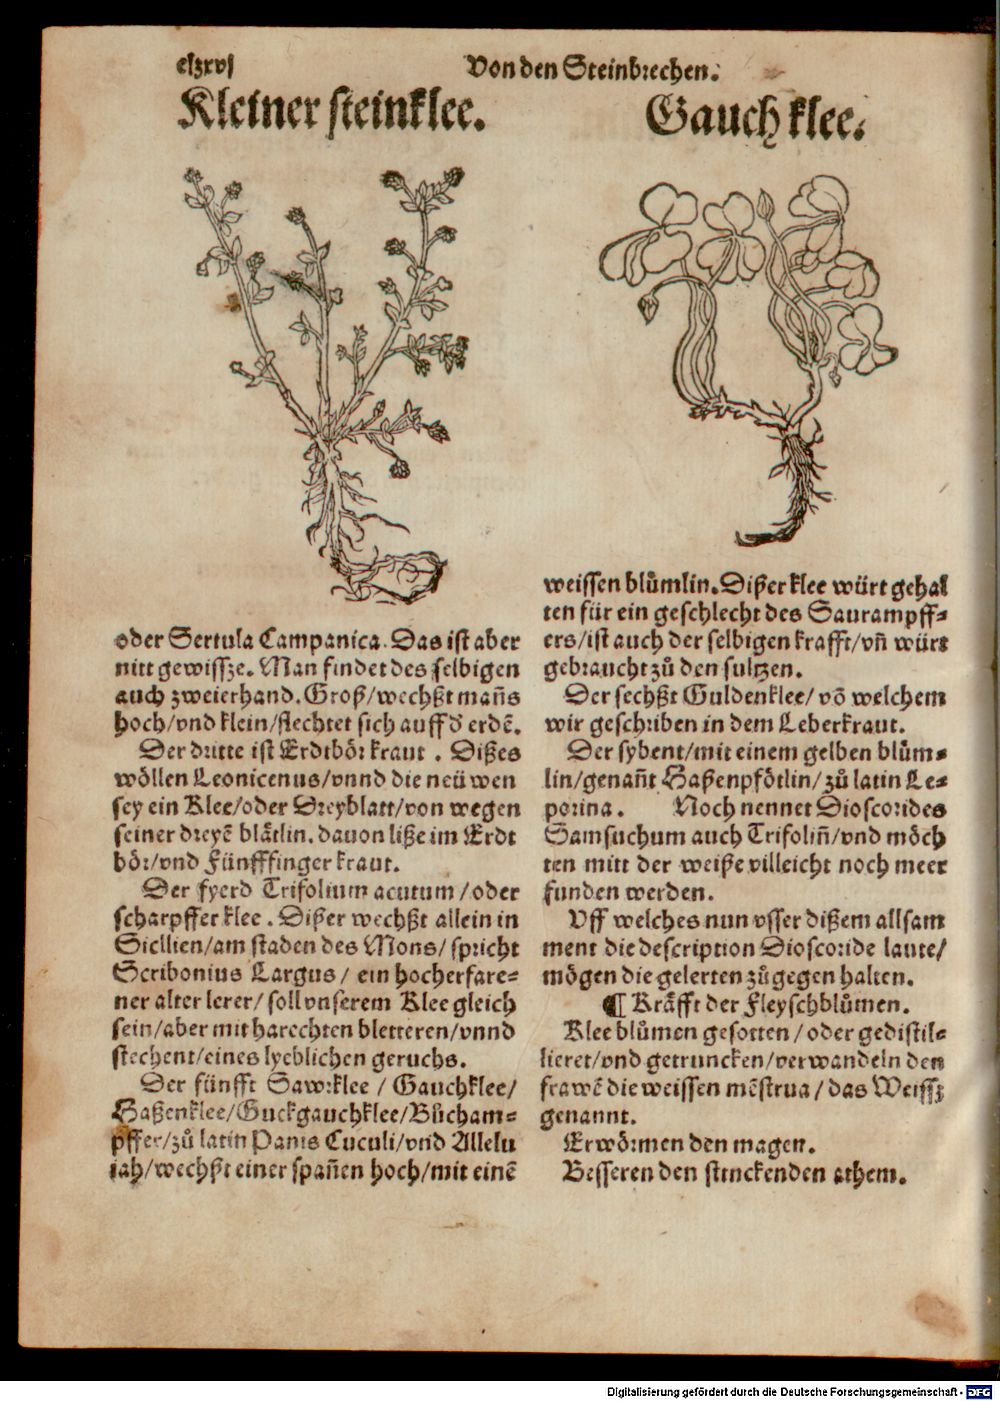 clxxvj
Von den Steinbrechen.
Kleiner steinklee.
Gauch klee.
oder Sertula Campanica. Das ist aber
nitt gewissze. Man findet des selbigen
auch zweierhand. Groß/wechßt mañs
hoch/vnd klein/flechtet sich auff d̃ erdẽ.
Der dritte ist Erdtbör kraut . Dißes
wöllen Leonicenus/vnnd die neüwen
sey ein Klee/oder Dreyblatt/von wegen
seiner dreyẽ blåtlin. dauon liße im Erdt
bör/vnd Fünfffinger kraut.
Der fyerd Trifolium acutum/oder
scharpffer klee . Dißer wechßt allein in
Sicilien/am staden des Mons/spricht
Scribonius Largus/ ein hocherfare-
ner alter lerer/ soll vnserem Klee gleich
sein/aber mit harechten bletteren/vnnd
stechent/eines lyeblichen geruchs.
Der fünfft Sawrklee / Gauchklee/
Haßenklee/Guckgauchklee/Bůcham-
pffer/zů latin Panis Cuculi/vnd Allelu
iah/wechßt einer spañen hoch/mit einẽ
weissen blůmlin. Dißer klee würt gehal
ten für ein geschlecht des Saurampff-
ers/ist auch der selbigen krafft/vñ würt
gebraucht zů den sultzen.
Der sechßt Guldenklee/ võ welchem
wir geschriben in dem Leberkraut.
Der sybent/mit einem gelben blům-
lin/genañt Haßenpfötlin/zů latin Le-
porina . Noch nennet Dioscorides
Samsuchum auch Trifoliñ/vnd möch
ten mitt der weiße villeicht noch meer
funden werden.
Vff welches nun vsser dißem allsam
ment die description Dioscoride laute/
mögen die gelerten zůgegen halten.
¶ Kräfft der Fleyschblůmen.
Klee blůmen gesotten/oder gedistil-
lieret/vnd getruncken/verwandeln den
frawẽ die weissen mẽstrua/das Weissz
genannt.
Erwörmen den magen.
Besseren den stinckenden athem.
Digitalisierung gefördert durch die Deutsche Forschungsgemeinschaft - DFG